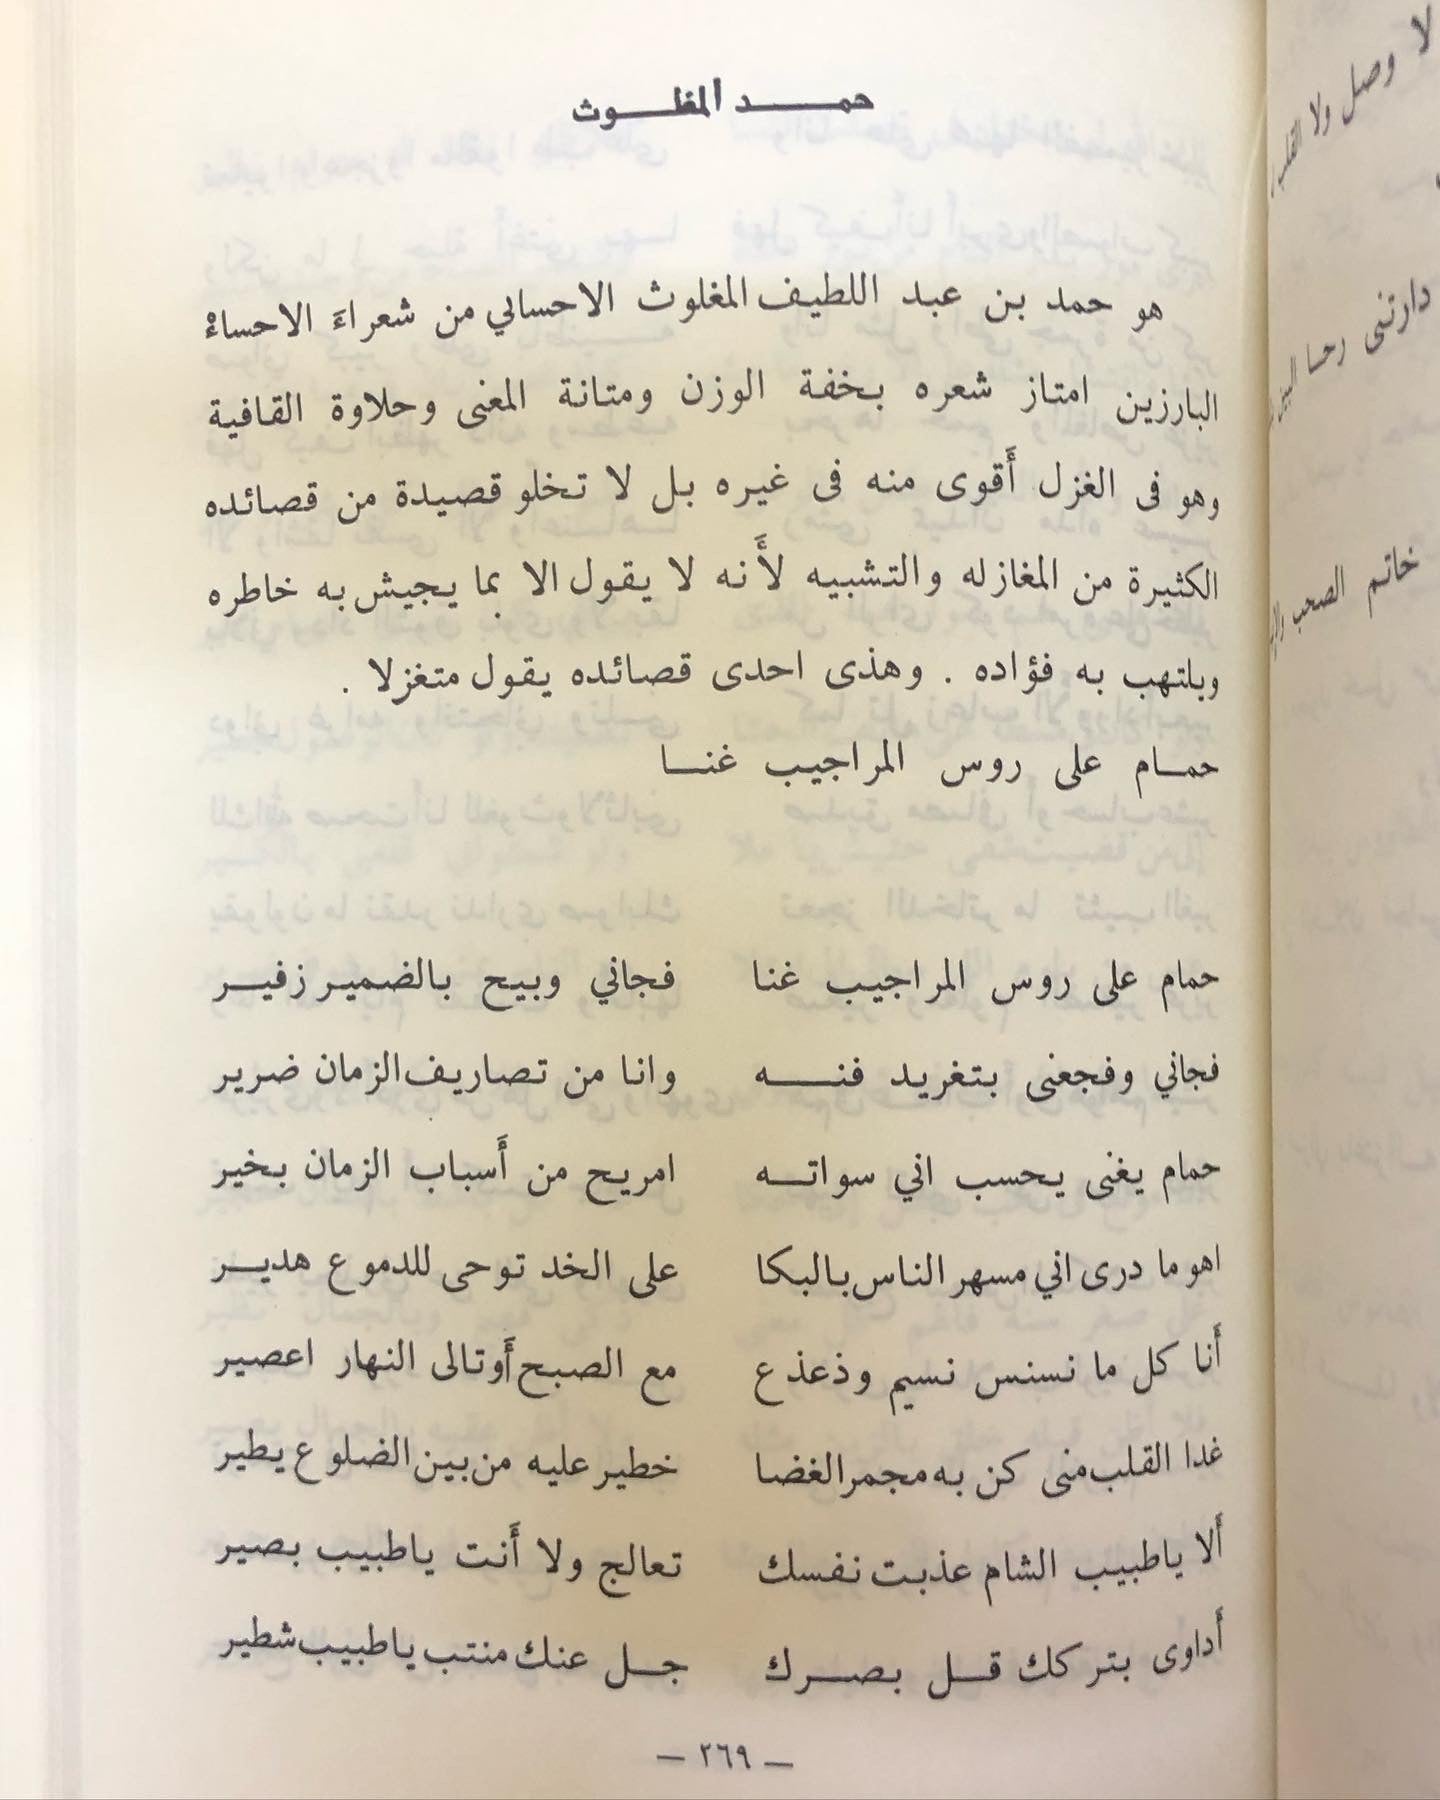 حمد المغلوث
هو حمد بن عبد اللطيف المغلوث الاحسائي من شعراءَ الاحساءْ
البارزين امتاز شعره بخفة الوزن ومتانة المعنى وحلاوة القافية
وهو فى الغزل أَقوى منه فى غيره بل لا تخلو قصيدة من قصائده
الكثيرة من المغازله والتشبيه لأَنه لا يقول الا بما يجيش به خاطره
ويلتهب به فؤاده . وهذى احدى قصائده يقول متغزلا .
حمام على روس المراجيب غنا
حمام على روس المراجيب غنا فجاني وبيح بالضمير زفير
فجاني وفجعنى بتغريد فنه وانا من تصاريف الزمان ضرير
حمام يغنى يحسب اني سواته امريح من أَسباب الزمان بخير
اهو ما درى اني مسهر الناس بالبكا على الخد توحى للدموع هدير
أَنا كل ما نسنس نسيم وذعذع مع الصبح أَوتالى النهار اعصير
غدا القلب منى كن به مجمر الغضا خطير عليه من بين الضلوع يطير
أَلا ياطبيب الشام عذبت نفسك تعالج ولا أَنت ياطبيب بصير
أَداوى بتركك قل بصرك جل عنك منتب ياطبيب شطير
— ٢٦٩ —
لا وصل ولا القلب
دارتنى رحا البين
خاتم الصحب